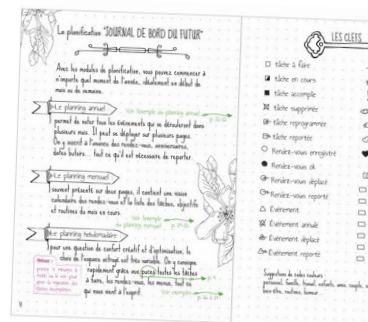 La planification "JOURNAL DE BORD DU FUTUR"
Avec les modules de planification, vous pouvez commencer à
n'importe quel moment de l'année, idéalement en début de
mois ou de semaine.
Le planning annuel
Voir l'exemple du planning annuel
permet de noter tous les événements qui se dérouleront dans
plusieurs mois. Il peut se déployer sur plusieurs pages.
On y inscrit à l'avance des rendez-vous, anniversaires,
dates butoirs... tout ce qu'il est nécessaire de reporter.
Le planning mensuel
souvent présenté sur deux pages, il contient une vision
calendaire des rendez-vous et la liste des tâches, objectifs
et routines du mois en cours.
Voir l'exemple
du planning mensuel
Le planning hebdomadaire
pour une question de confort créatif et d'optimisation, le
choix de l'espace octroyé est très variable. On y consigne
rapidement grâce aux puces toutes les tâches
à faire, les rendez-vous, les menus, tout ce
qui nous vient à l'esprit.
Voir exemples
LES CLEFS
tâche à faire
tâche en cours
tâche accomplie
tâche supprimée
tâche reprogrammée
tâche reportée
Rendez-vous enregistré
Rendez-vous ok
Rendez-vous déplacé
Rendez-vous reporté
Evénement
Evénement annulé
Evénement déplacé
Evénement reporté
Suggestions de codes couleurs :
personnel, famille, travail, enfants, amis, couple,
bien-être, routines, humeur